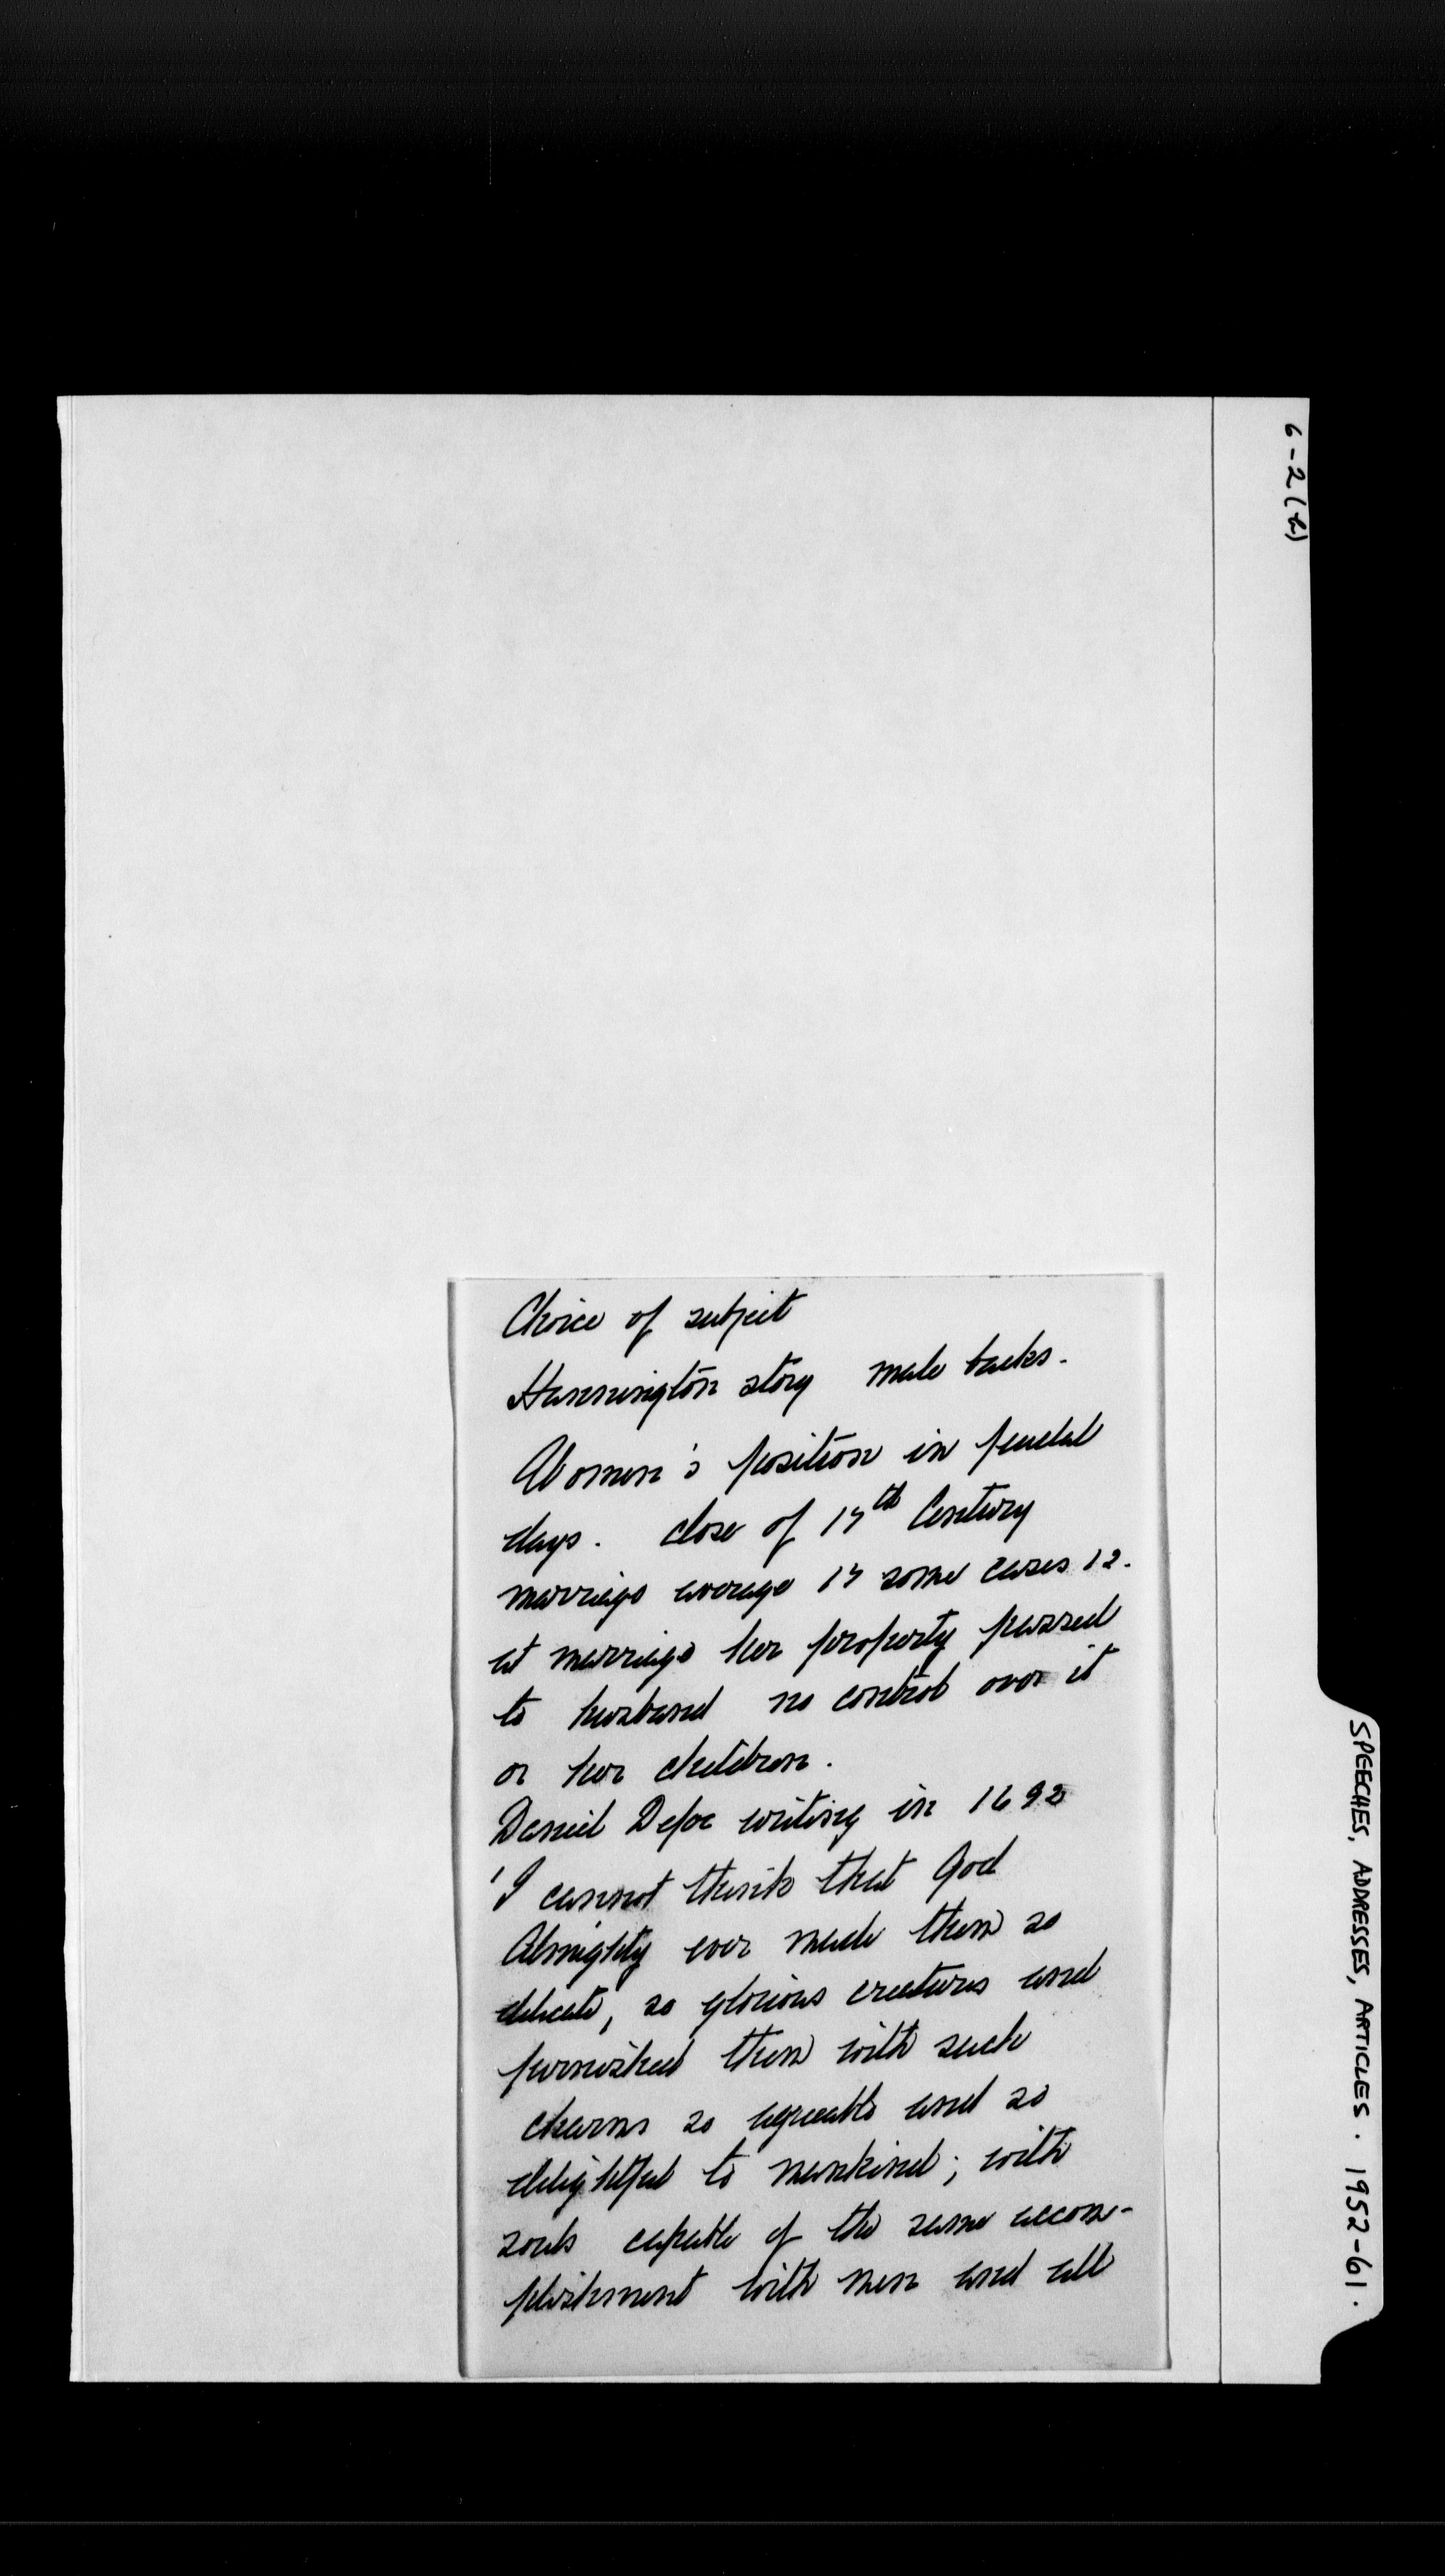 6-2(h)
SPEECHES, ADDRESSES, ARTICLES. 1952-61.
Choice of subject
Hannington story male backs.
Women's position in feudal
days. close of 17th Century
marriage average 17 some cases 12.
at marriage her property passed
to husband no control over it
or her children.
Daniel Defoe writing in 1692
'I cannot think that God
Almighty ever made them so
delicate, so glorious creatures and
furnished them with such
charms so agreeable and so
delightful to mankind; with
souls capable of the same accom-
plishment with men and all